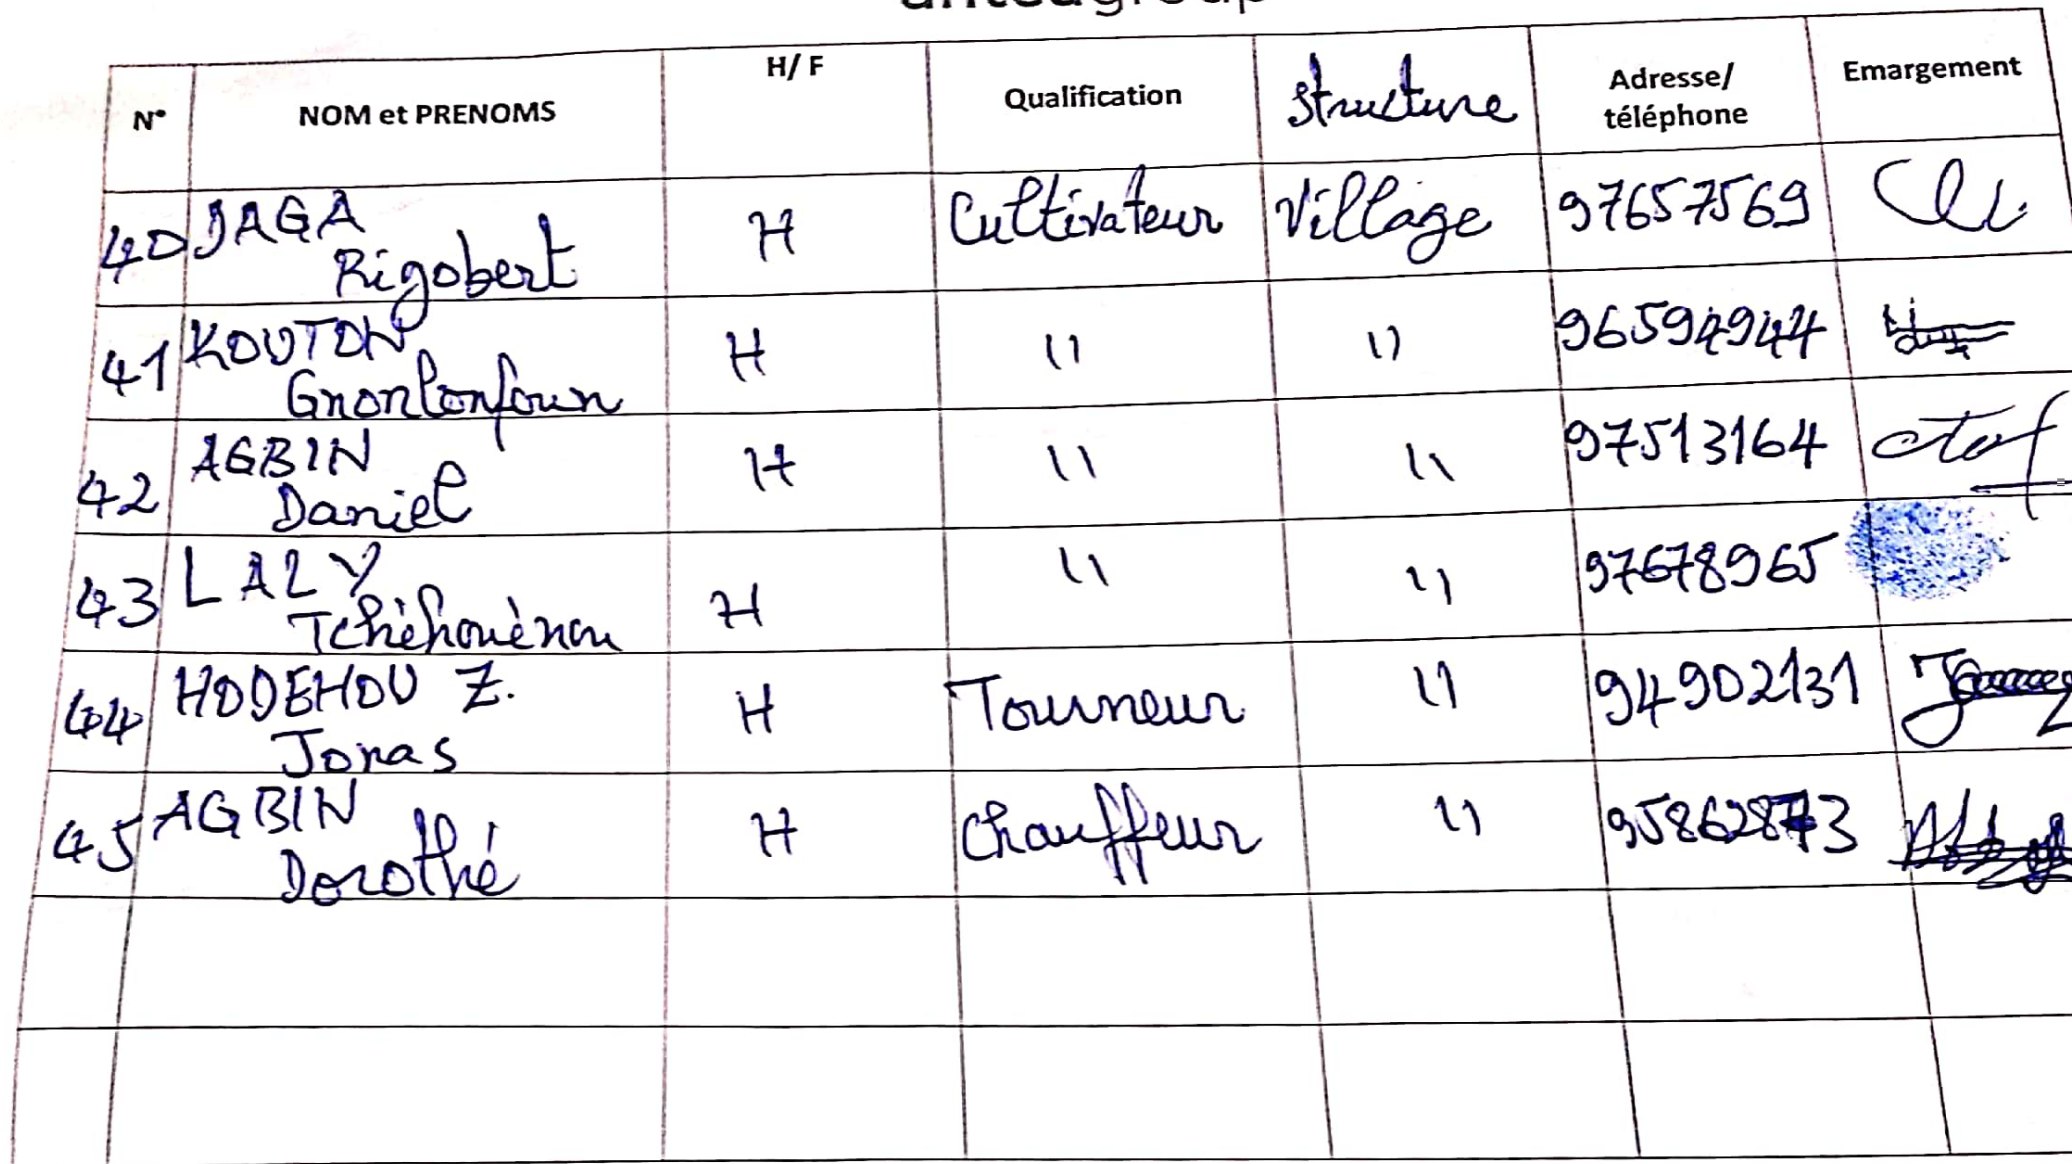 anteagroup
N° NOM et PRENOMS H/ F Qualification Structure Adresse/ téléphone Emargement
40 DAGA Rigobert H Cultivateur Village 97657569
41 KOUTON Gnonlonfoun H " " 96594944
42 AGBIN Daniel H " " 97513164
43 LALY Tchéhouènou H " " 97678965
44 HODEHOU Z. Jonas H Tourneur " 94902131
45 AGBIN Dorothé H Chauffeur " 95862873